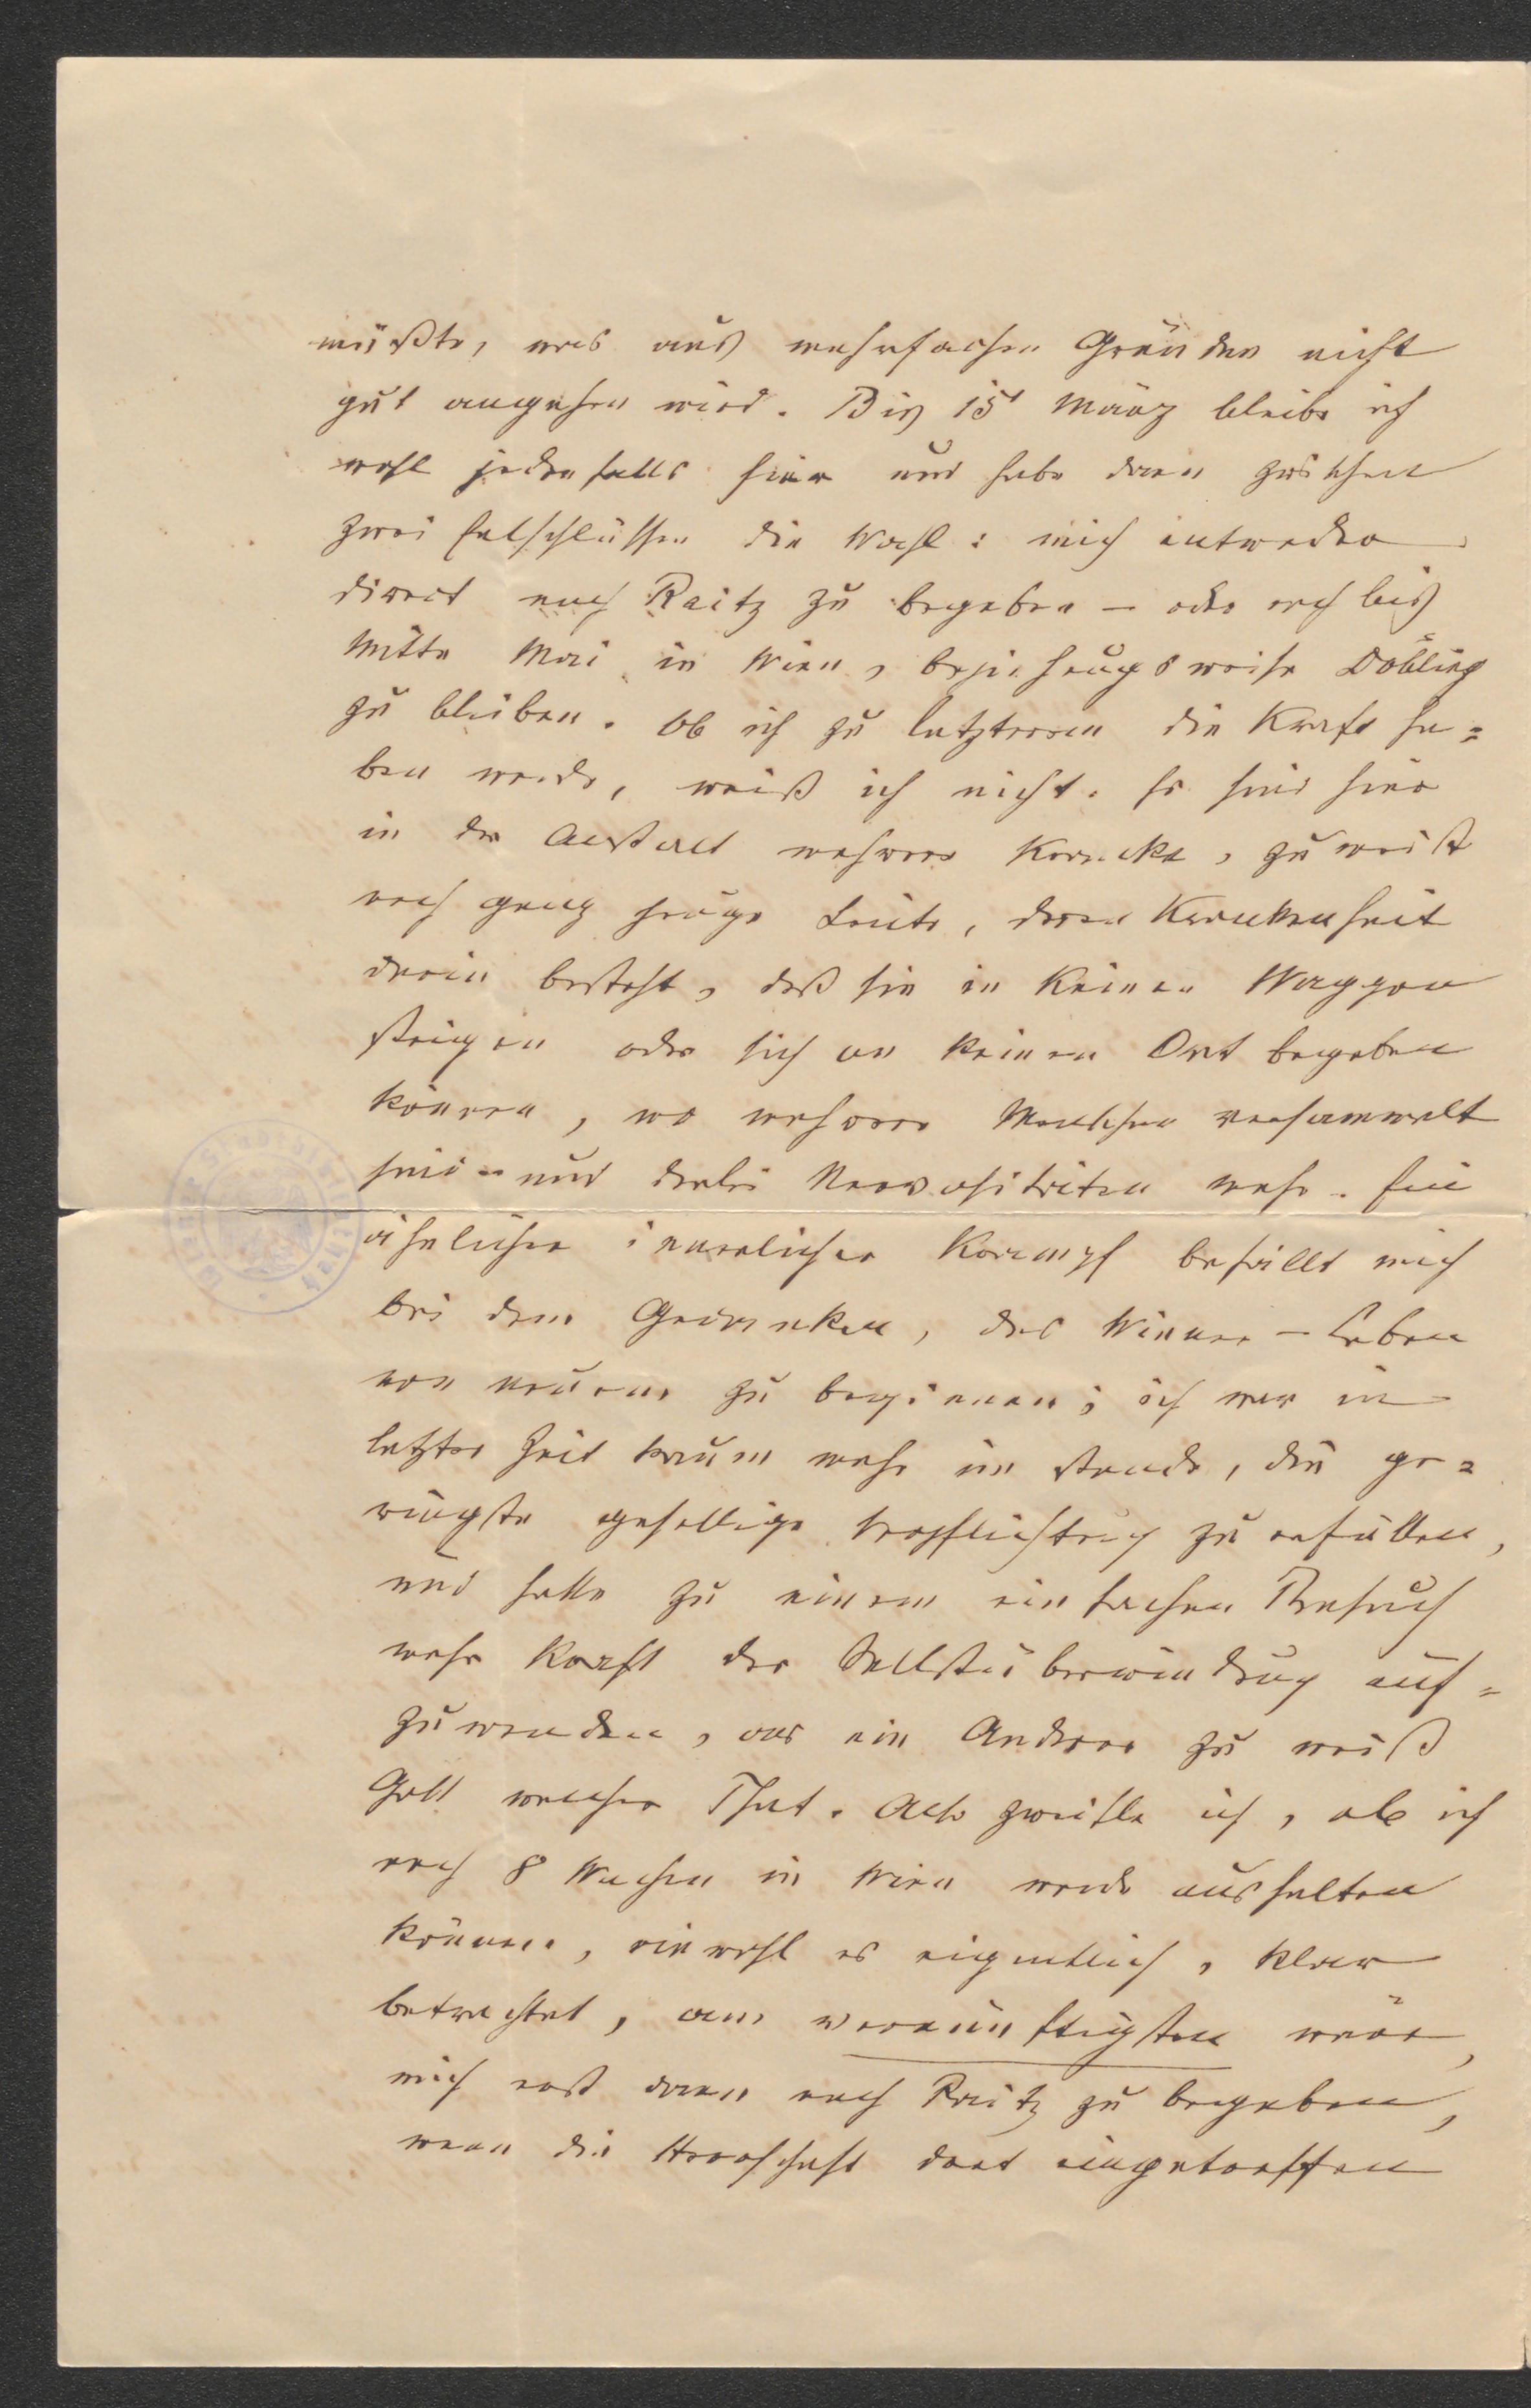 müßte, was aus mehrfachen Gründen nicht
gut angehen wird. Bis 15t März bleibe ich
wohl jedenfalls hier und habe dann zwischen
zwei Entschlüssen die Wahl: mich entweder
direct nach Raitz zu begeben – oder noch bis
Mitte Mai in Wien, beziehungsweise Döbling
zu bleiben. Ob ich zu letzterem die Kraft ha=
ben werde, weiß ich nicht. Es sind hier
in der Anstalt mehrere Kranke, zumeist
noch ganz junge Leute, deren Krankenheit
darin besteht, daß sie in keinen Waggon
steigen oder sich an keinen Ort begeben
können, wo mehrere Menschen versammelt
sind – und derlei Nervositäten mehr. Ein
ähnlicher innerlicher Krampf befällt mich
bei dem Gedanken, das Wiener-Leben
von neuem zu beginnen; ich war in
letzter Zeit kaum mehr im stande, die ge=
ringste gesellige Verpflichtung zu erfüllen,
und hatte zu einem einfachen Besuch
mehr Kraft der Selbstüberwindung auf=
zuwenden, als ein Anderer zu weiß
Gott welcher That. Also zweifle ich, ob ich
noch 8 Wochen in Wien werde aushalten
können, wiewohl es eigentlich, klar
betrachtet, am vernünftigsten wäre,
mich erst dann nach Raitz zu begeben,
wenn die Herrschaft dort eingetroffen